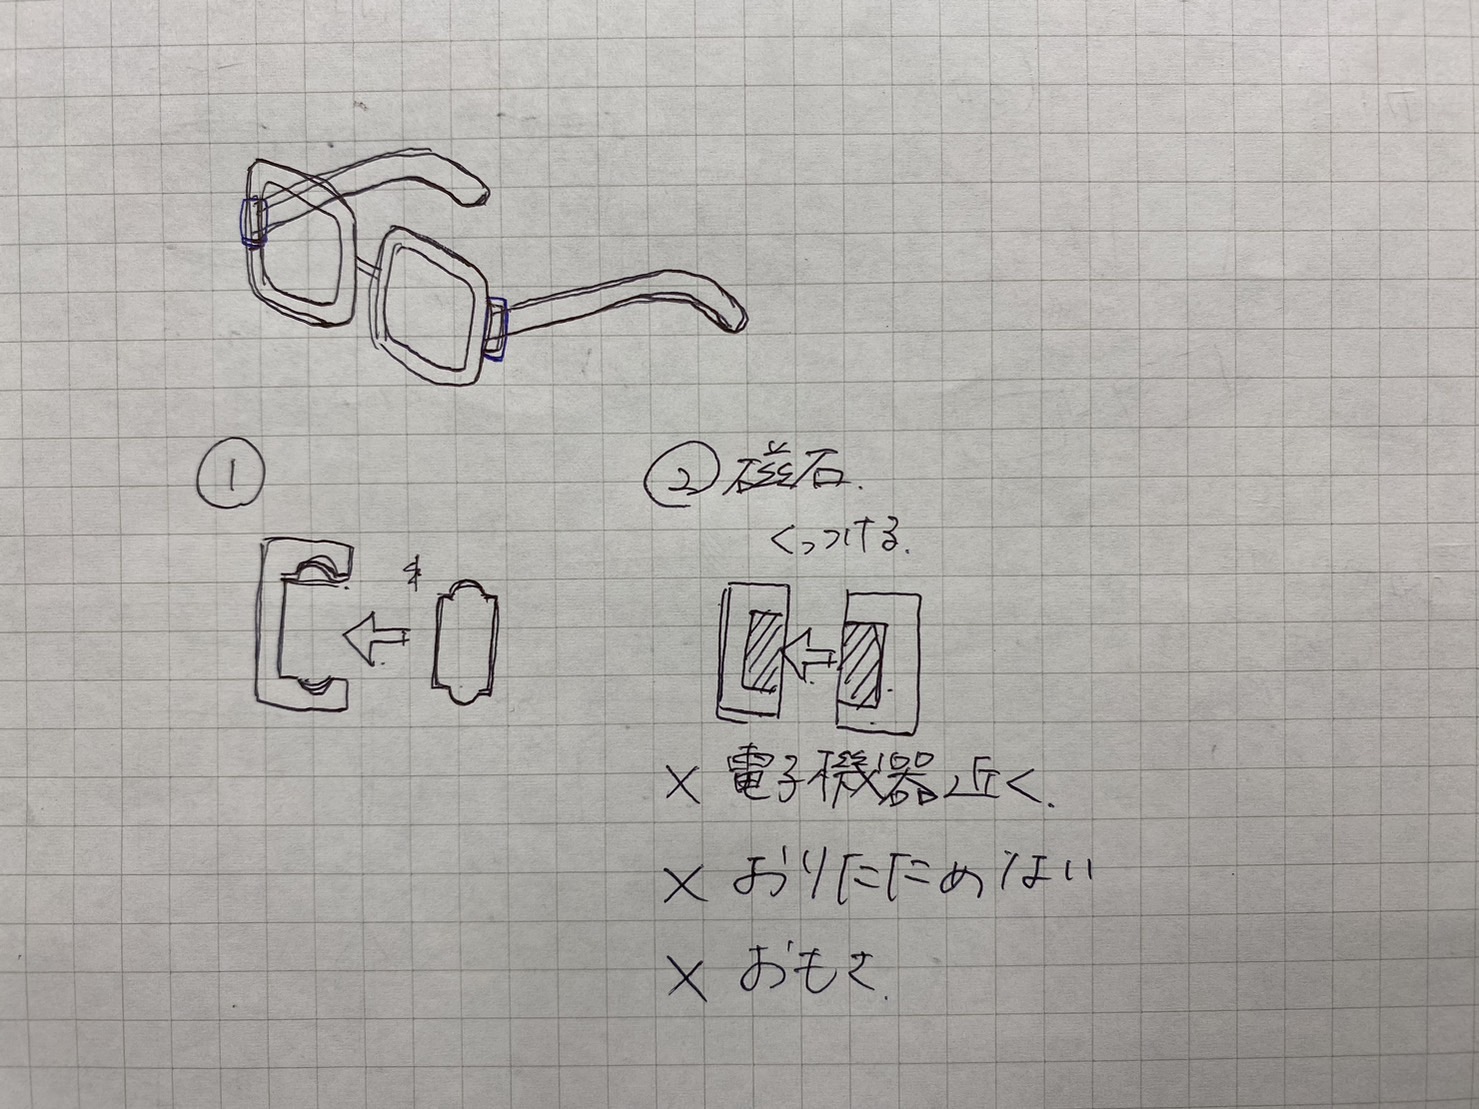 ①
② 磁石.
くっつける.
× 電子機器近く.
× おりたためない
× おもさ.